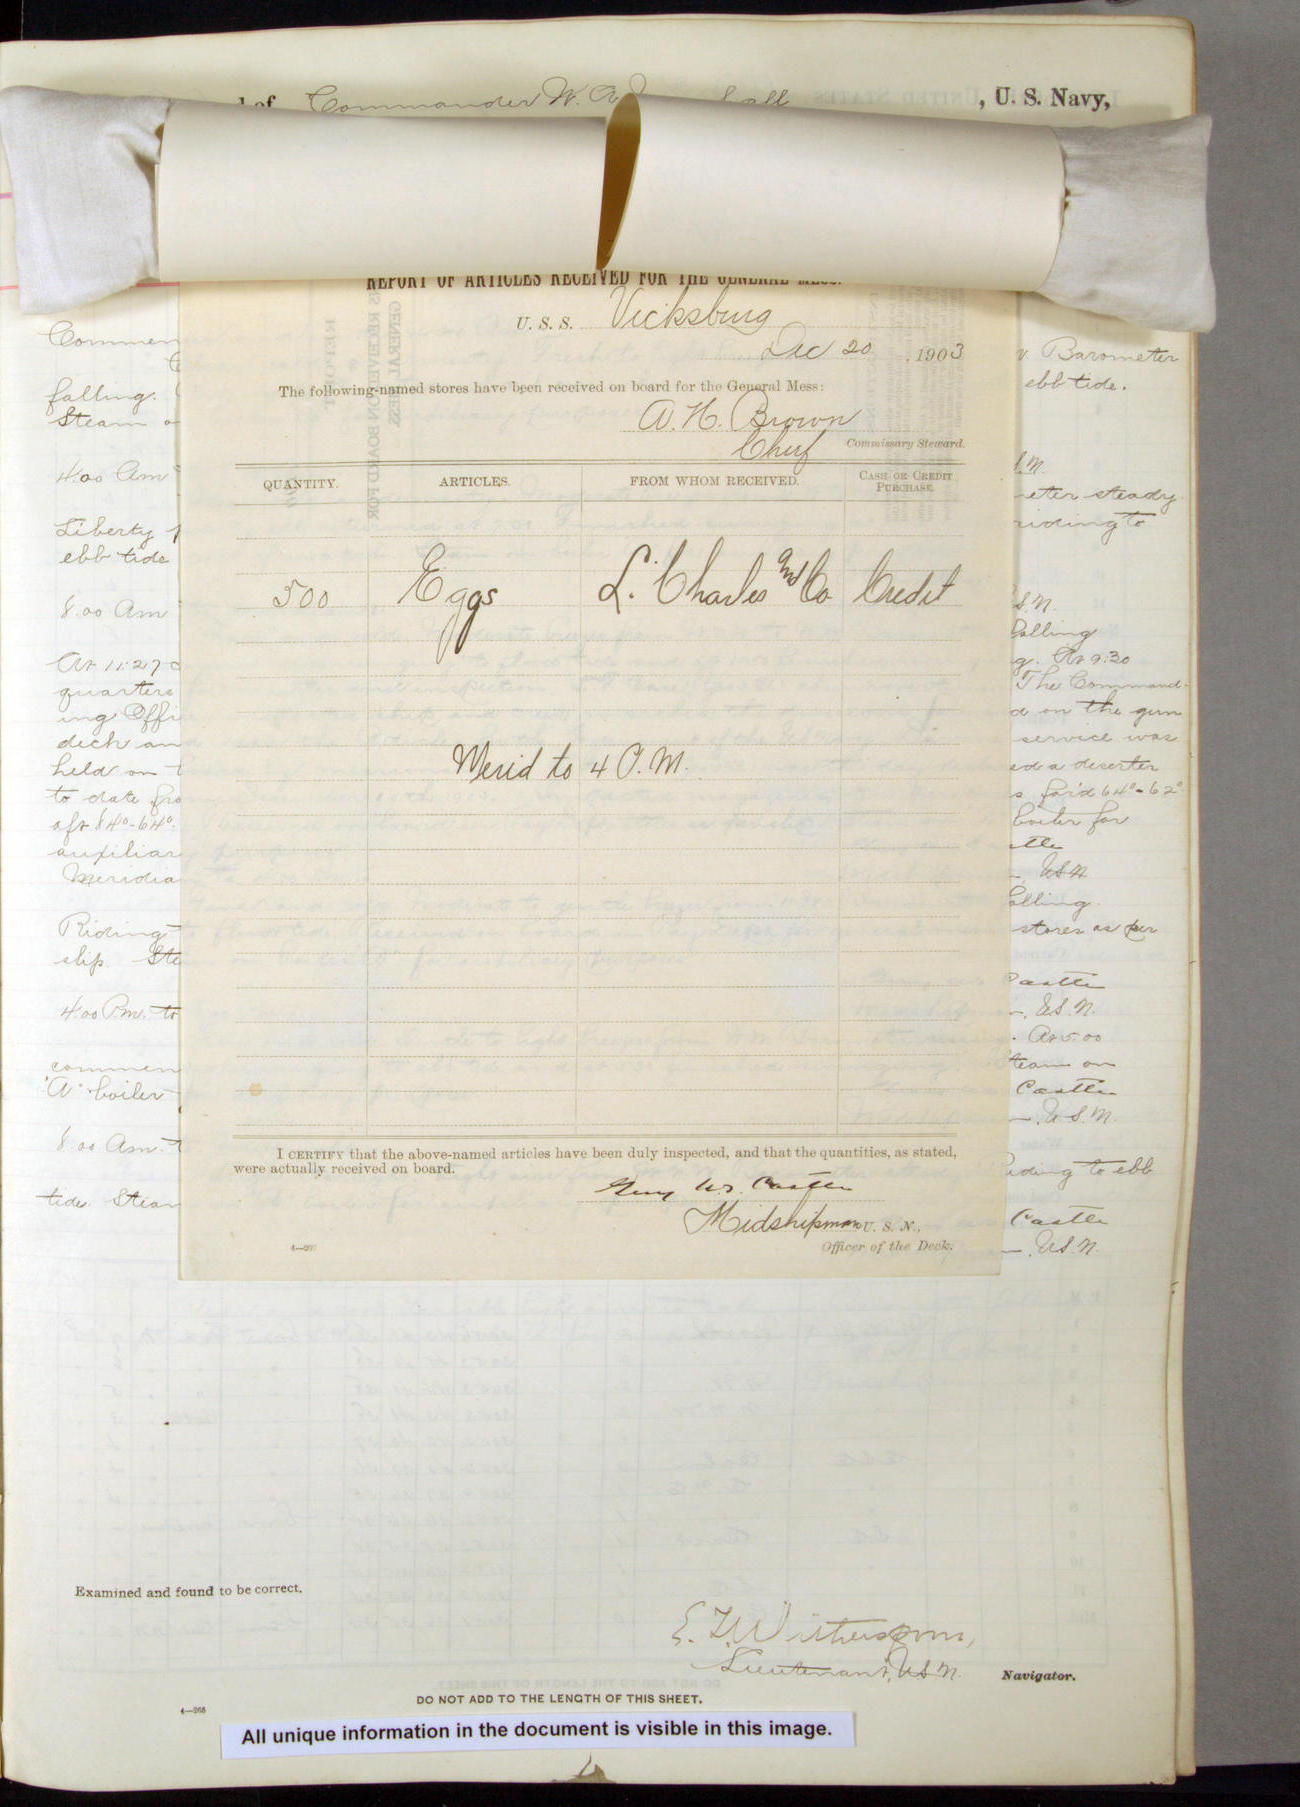 of Commander W. A. , U. S. Navy,
REPORT OF ARTICLES RECEIVED FOR THE GENERAL MESS.
U. S. S. Vicksburg
Dec 20, 1903
The following-named stores have been received on board for the General Mess:
A. H. Brown
Chief Commissary Steward.
QUANTITY. ARTICLES. FROM WHOM RECEIVED. CASH OR CREDIT PURCHASE.
500 Eggs L. Charles and Co Credit
Merid to 4 P.M.
I CERTIFY that the above-named articles have been duly inspected, and that the quantities, as stated,
were actually received on board.
Guy W. Castle
Midshipman U. S. N.,
Officer of the Deck.
Commen
falling.
Steam
4:00 Am
Liberty
ebb tide
8.00 Am
At 11:27
quarters
ing Offi
deck an
held on
to date fro
aft 84°-64°.
auxiliary
Meridia
Riding
slip. Ste
4:00 P.m. to
commen
"A" boiler
8.00 Am.
tide. Steam
Barometer
ebb tide.
eter steady
riding to
S.N.
falling
g. At 9:30
The Command-
d on the gun
service was
ed a deserter
s for'd 64°-62°
boiler for
stle
USN
falling.
stores as per
Castle
U.S.N.
At 5.00
team on
Castle
U.S.N.
iding to ebb
Castle
U.S.N.
Examined and found to be correct.
E. T. Witherspoon,
Lieutenant, U.S.N. Navigator.
DO NOT ADD TO THE LENGTH OF THIS SHEET.
4—268
All unique information in the document is visible in this image.